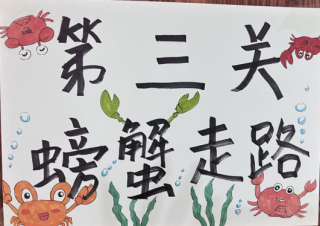 第三关
螃蟹走路